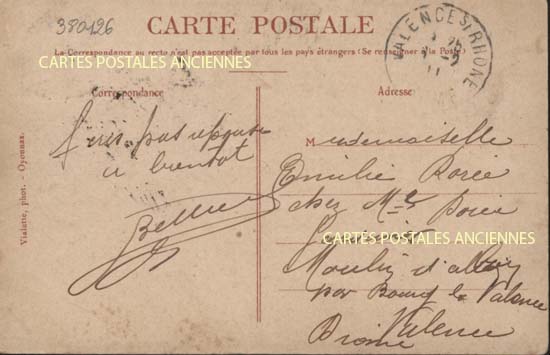 380196
CARTE POSTALE
La Correspondance au recto n'est pas acceptée par tous les pays étrangers (Se renseigner à la Poste)
VALENCE S/ RHONE
CARTES POSTALES ANCIENNES
Correspondance
Adresse
pas
a bientot
Mademoiselle
Emilie
chez Mr
CARTES POSTALES ANCIENNES
Moulin d'
par Bourg les Valence
Valence
Drome
Vialatte, phot. - Oyonnax.